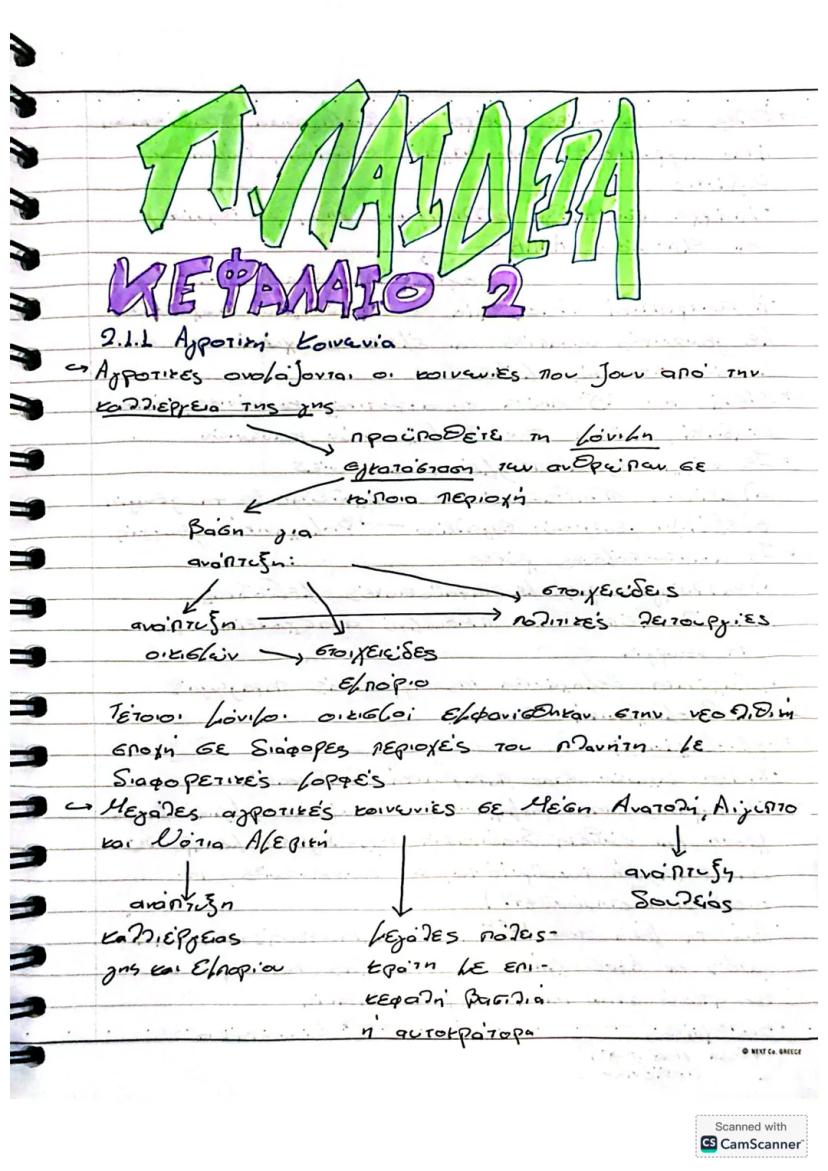 Π.ΠΑΙΔΕΙΑ
ΚΕΦΑΛΑΙΟ 2
2.1.1 Αγροτική Κοινωνία
↪ Αγροτικές ονομάζονται οι κοινωνίες που ζουν από την
καλλιέργεια της γης
προϋποθέτει τη μόνιμη
εγκατάσταση των ανθρώπων σε
κάποια περιοχή
βάση για
ανάπτυξη:
στοιχειώδεις
ανάπτυξη
πολιτικές λειτουργίες
οικισμών
στοιχειώδες
εμπόριο
Τέτοιοι μόνιμοι οικισμοί εμφανίσθηκαν στην νεολιθική
εποχή σε διάφορες περιοχές του πλανήτη με
διαφορετικές μορφές
↪ Μεγάλες αγροτικές κοινωνίες σε Μέση Ανατολή, Αίγυπτο
και Νότια Αμερική
ανάπτυξη
δουλείας
ανάπτυξη
καλλιέργειας
γης και Εμπορίου
μεγάλες πόλεις-
κράτη με επι-
κεφαλή βασιλιά
ή αυτοκράτορα
© NEXT Co. GREECE
Scanned with
CS CamScanner